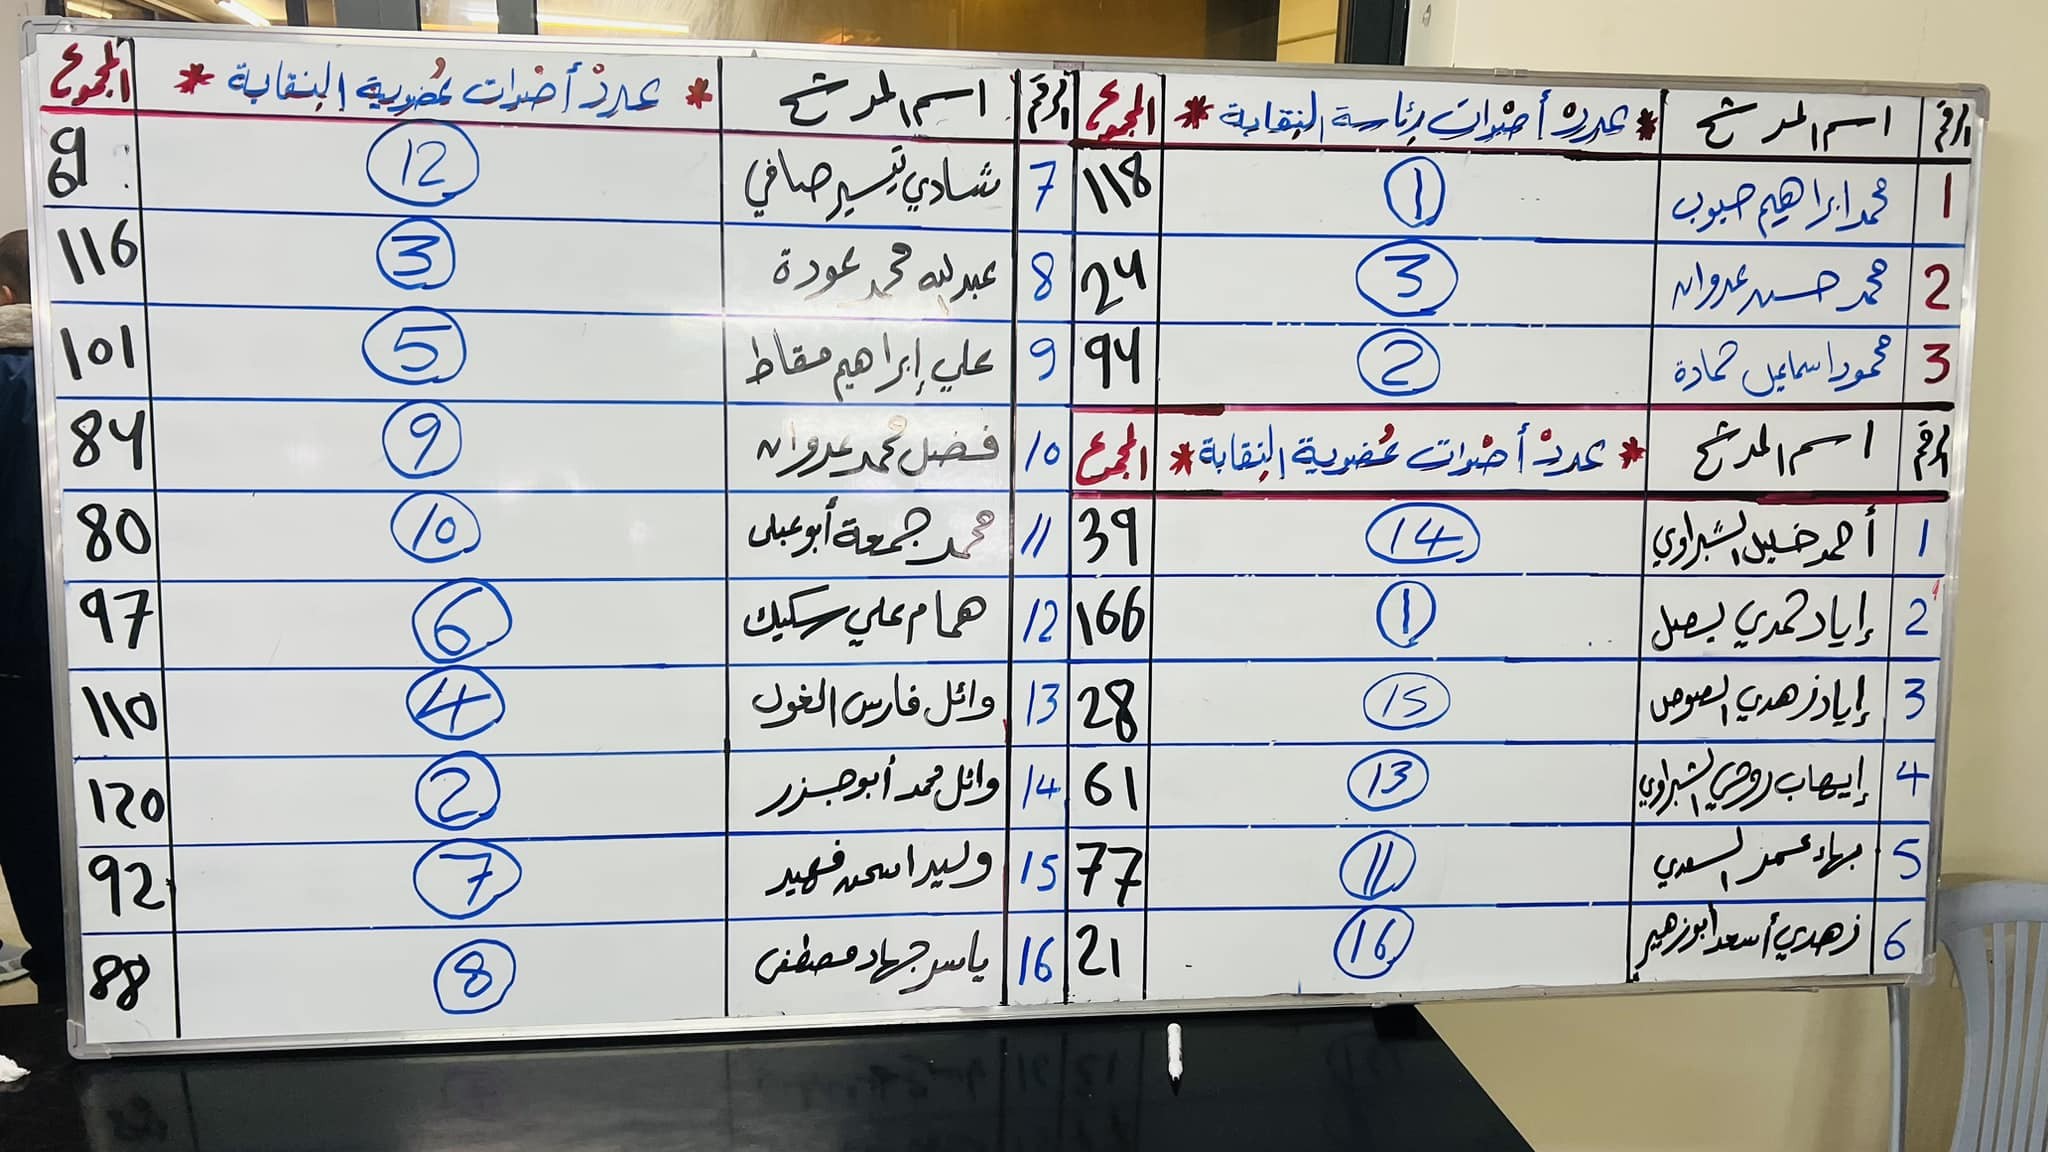 الرقم اسم المرشح * عدد أصوات رئاسة النقابة * المجموع
1 محمد ابراهيم حبوب 1 118
2 محمد حسن عدوان 3 24
3 محمود اسماعيل حمادة 2 94
الرقم اسم المرشح * عدد أصوات عضوية النقابة * المجموع
1 أحمد خليل الشبراوي 14 39
2 إياد حمدي بصل 1 166
3 إياد زهدي 15 28
4 إيهاب روحي الشبراوي 13 61
5 بهاء السعدي 11 77
6 زهدي أسعد أبو زهير 16 21
الرقم اسم المرشح * عدد أصوات عضوية النقابة * المجموع
7 شادي تيسير صافي 12
8 عبد لله محمد عودة 3 116
9 علي إبراهيم مقاط 5 101
10 فضل محمد عدوان 9 84
11 محمد جمعة أبو عبلى 10 80
12 همام علي سكيك 6 97
13 وائل فارس الغول 4 110
14 وائل محمد أبو جزر 2 120
15 وليد فهيد 7 92
16 ياسر جهاد مصطفى 8 88